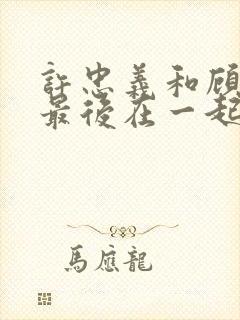 許忠義和顾
最後在一起
馬應龍